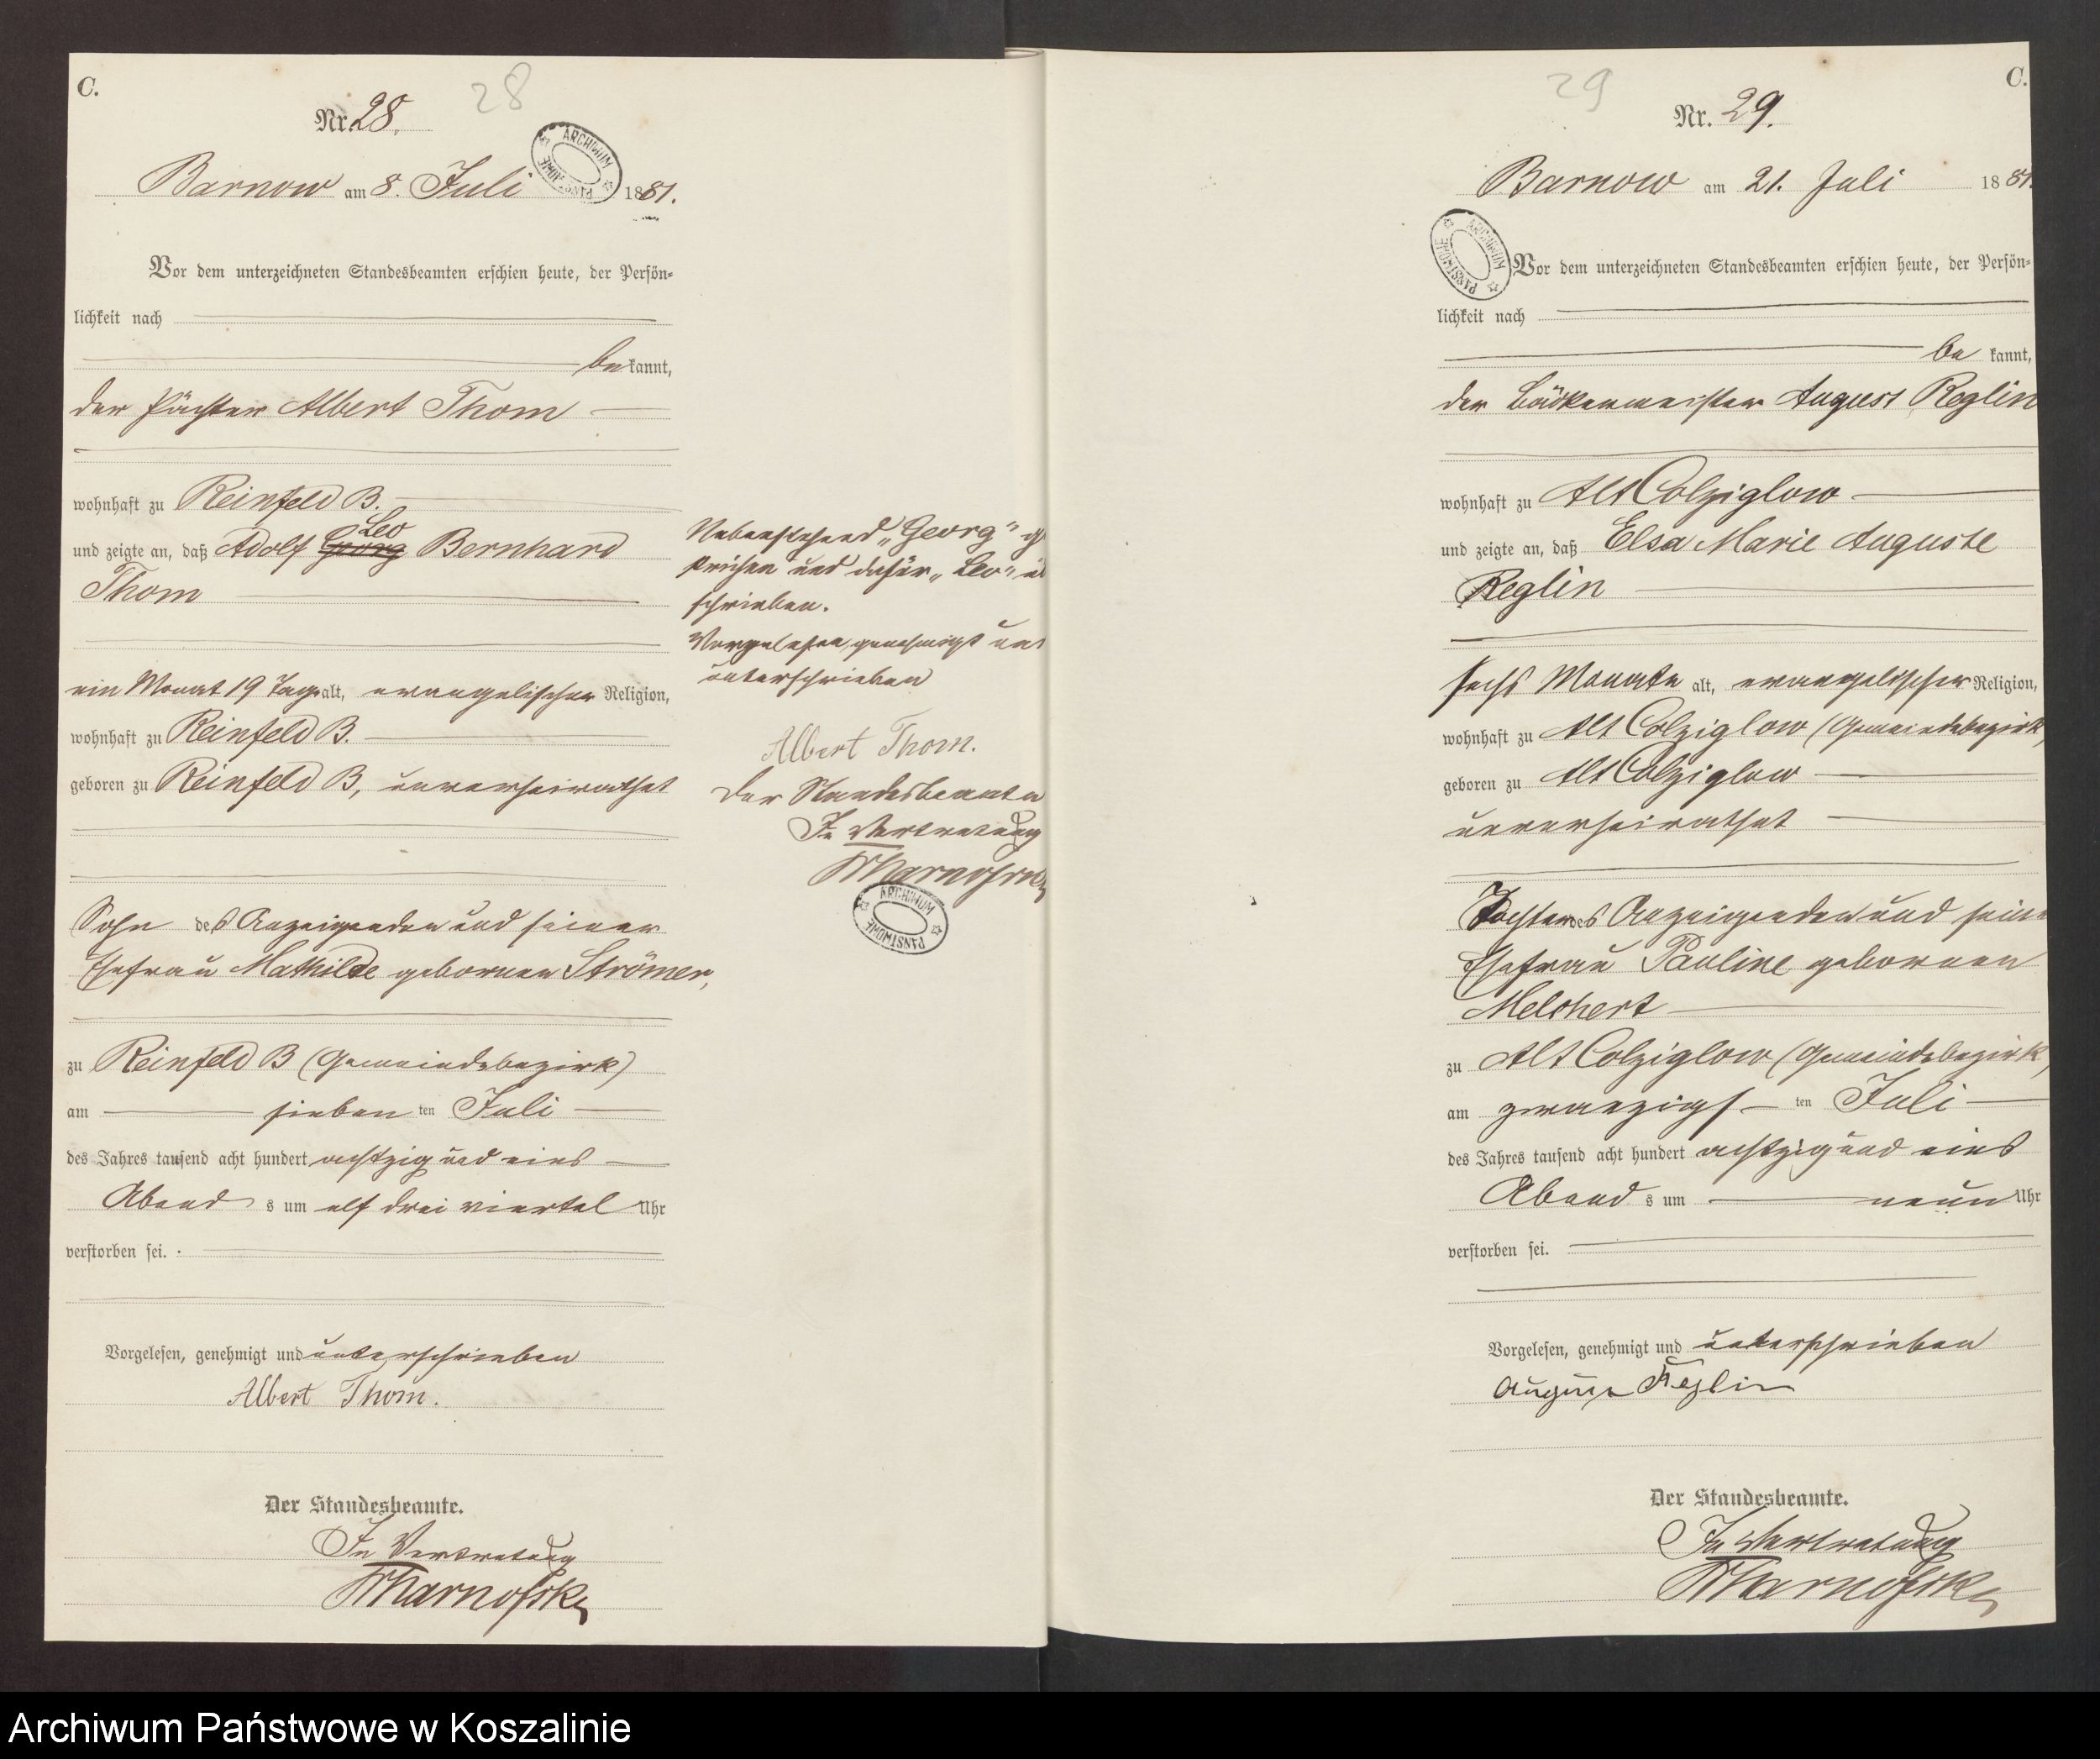 C.
28
Nr. 28.
ARCHIWUM PAŃSTWOWE
Barnow am 8. Juli 1881.
Vor dem unterzeichneten Standesbeamten erschien heute, der Persön-
lichkeit nach
bekannt,
der Pächter Albert Thom
wohnhaft zu Reinfeld B.
Leo
und zeigte an, daß Adolf Georg Bernhard
Thom
ein Monat 19 Tage alt, evangelischer Religion,
wohnhaft zu Reinfeld B.
geboren zu Reinfeld B, unverheirathet
Sohn des Anzeigenden und seiner
Ehefrau Mathilde geborenen Strömer,
zu Reinfeld B (Gemeindebezirk)
am siebenten Juli
des Jahres tausend acht hundert achtzig und eins
Abends um elf drei viertel Uhr
verstorben sei.
Vorgelesen, genehmigt und unterschrieben
Albert Thom.
Der Standesbeamte.
In Vertretung
Nebenstehend „Georg"
und dafür „Leo"
schrieben.
Vorgelesen, genehmigt und
unterschrieben
Albert Thom.
Der Standesbeamte
In Vertretung
ARCHIWUM PAŃSTWOWE
C.
29
Nr. 29.
Barnow am 21. Juli 1881.
ARCHIWUM PAŃSTWOWE
Vor dem unterzeichneten Standesbeamten erschien heute, der Persön-
lichkeit nach
be kannt,
der Bäckermeister August Reglin
wohnhaft zu Alt Colziglow
und zeigte an, daß Elsa Marie Auguste
Reglin
sechs Monate alt, evangelischer Religion,
wohnhaft zu Alt Colziglow (Gemeindebezirk)
geboren zu Alt Colziglow
unverheirathet
Tochter des Anzeigenden und seiner
Ehefrau Pauline geborenen
Melchert
zu Alt Colziglow (Gemeindebezirk)
am zwanzigsten Juli
des Jahres tausend acht hundert achtzig und eins
Abends um neun Uhr
verstorben sei.
Vorgelesen, genehmigt und unterschrieben
August Reglin
Der Standesbeamte.
In Vertretung
Archiwum Państwowe w Koszalinie